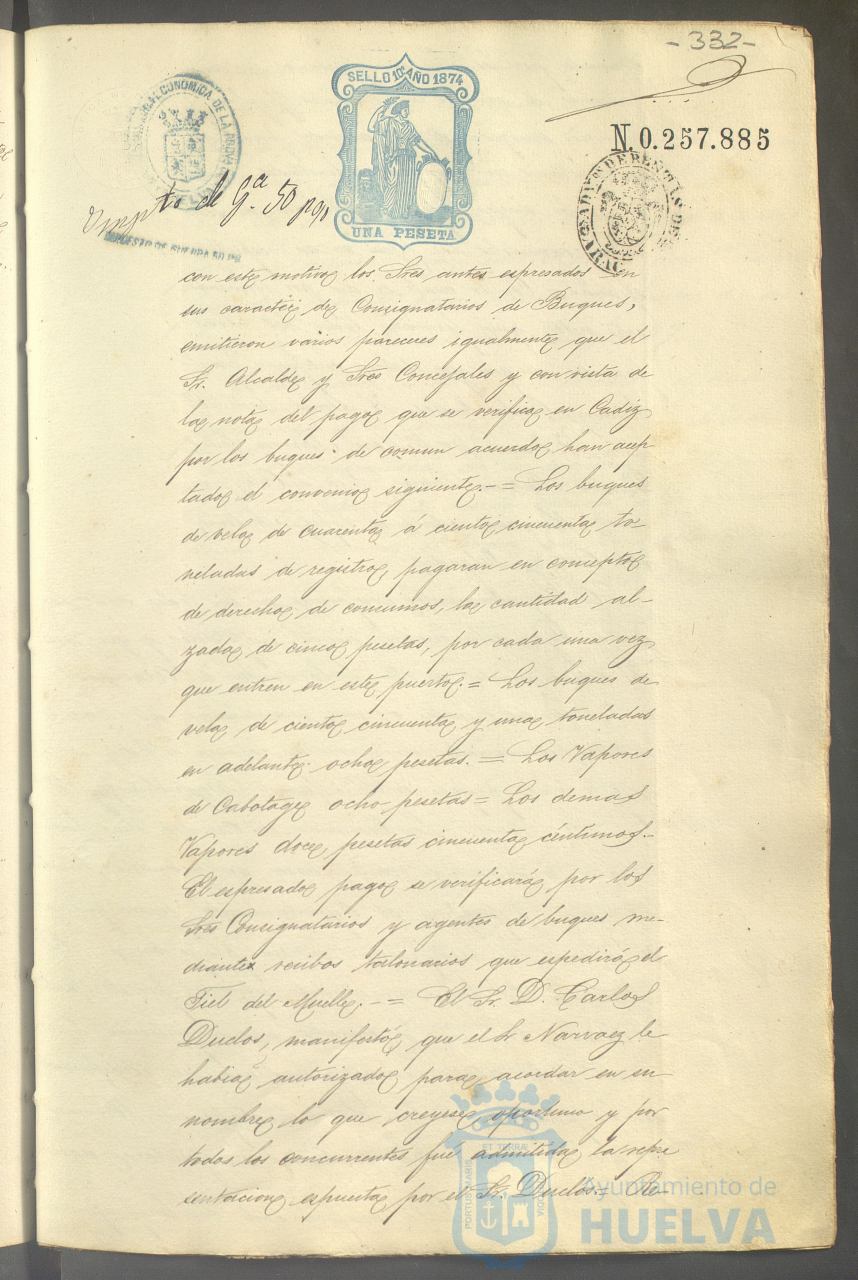 -332-
SELLO 10º AÑO 1874
UNA PESETA
ECONOMICA DE LA
N. 0.257.885
Impto de Gª. 50 p%
IMPUESTO DE GUERRA 50 P%
con este motivo los Sres antes espresados en
sus caracter de Consignatarios de Buques,
emitieron varios pareceres igualmente que el
Sr. Alcalde y Sres Concejales y con vista de
la nota del pago que se verifica en Cadiz
por los buques de comun acuerdo han acep
tado el convenio siguiente.-= Los buques
de vela de cuarenta á ciento cincuenta to-
neladas de registro, pagaran en concepto
de derecho de consumos, la cantidad al-
zada de cinco pesetas, por cada una vez
que entren en este puerto.= Los buques de
vela de ciento cincuenta y una toneladas
en adelante ocho pesetas.= Los Vapores
de Cabotage ocho pesetas= Los demas
Vapores doce pesetas cincuenta céntimos.-
El espresado pago se verificará por los
Sres Consignatarios y agentes de buques me-
diante recibos talonarios que espedirá el
Fiel del Muelle.-= El Sr. D. Carlos
Duclos, manifestó que el Sr Narvaez le
habia autorizado para acordar en su
nombre lo que creyese oportuno y por
todos los concurrentes fue admitida la repre
sentacion espuesta por el Sr. Duclos= Re-
PORTUS MARIS
ET TERRÆ
CUSTODIA
Ayuntamiento de
HUELVA